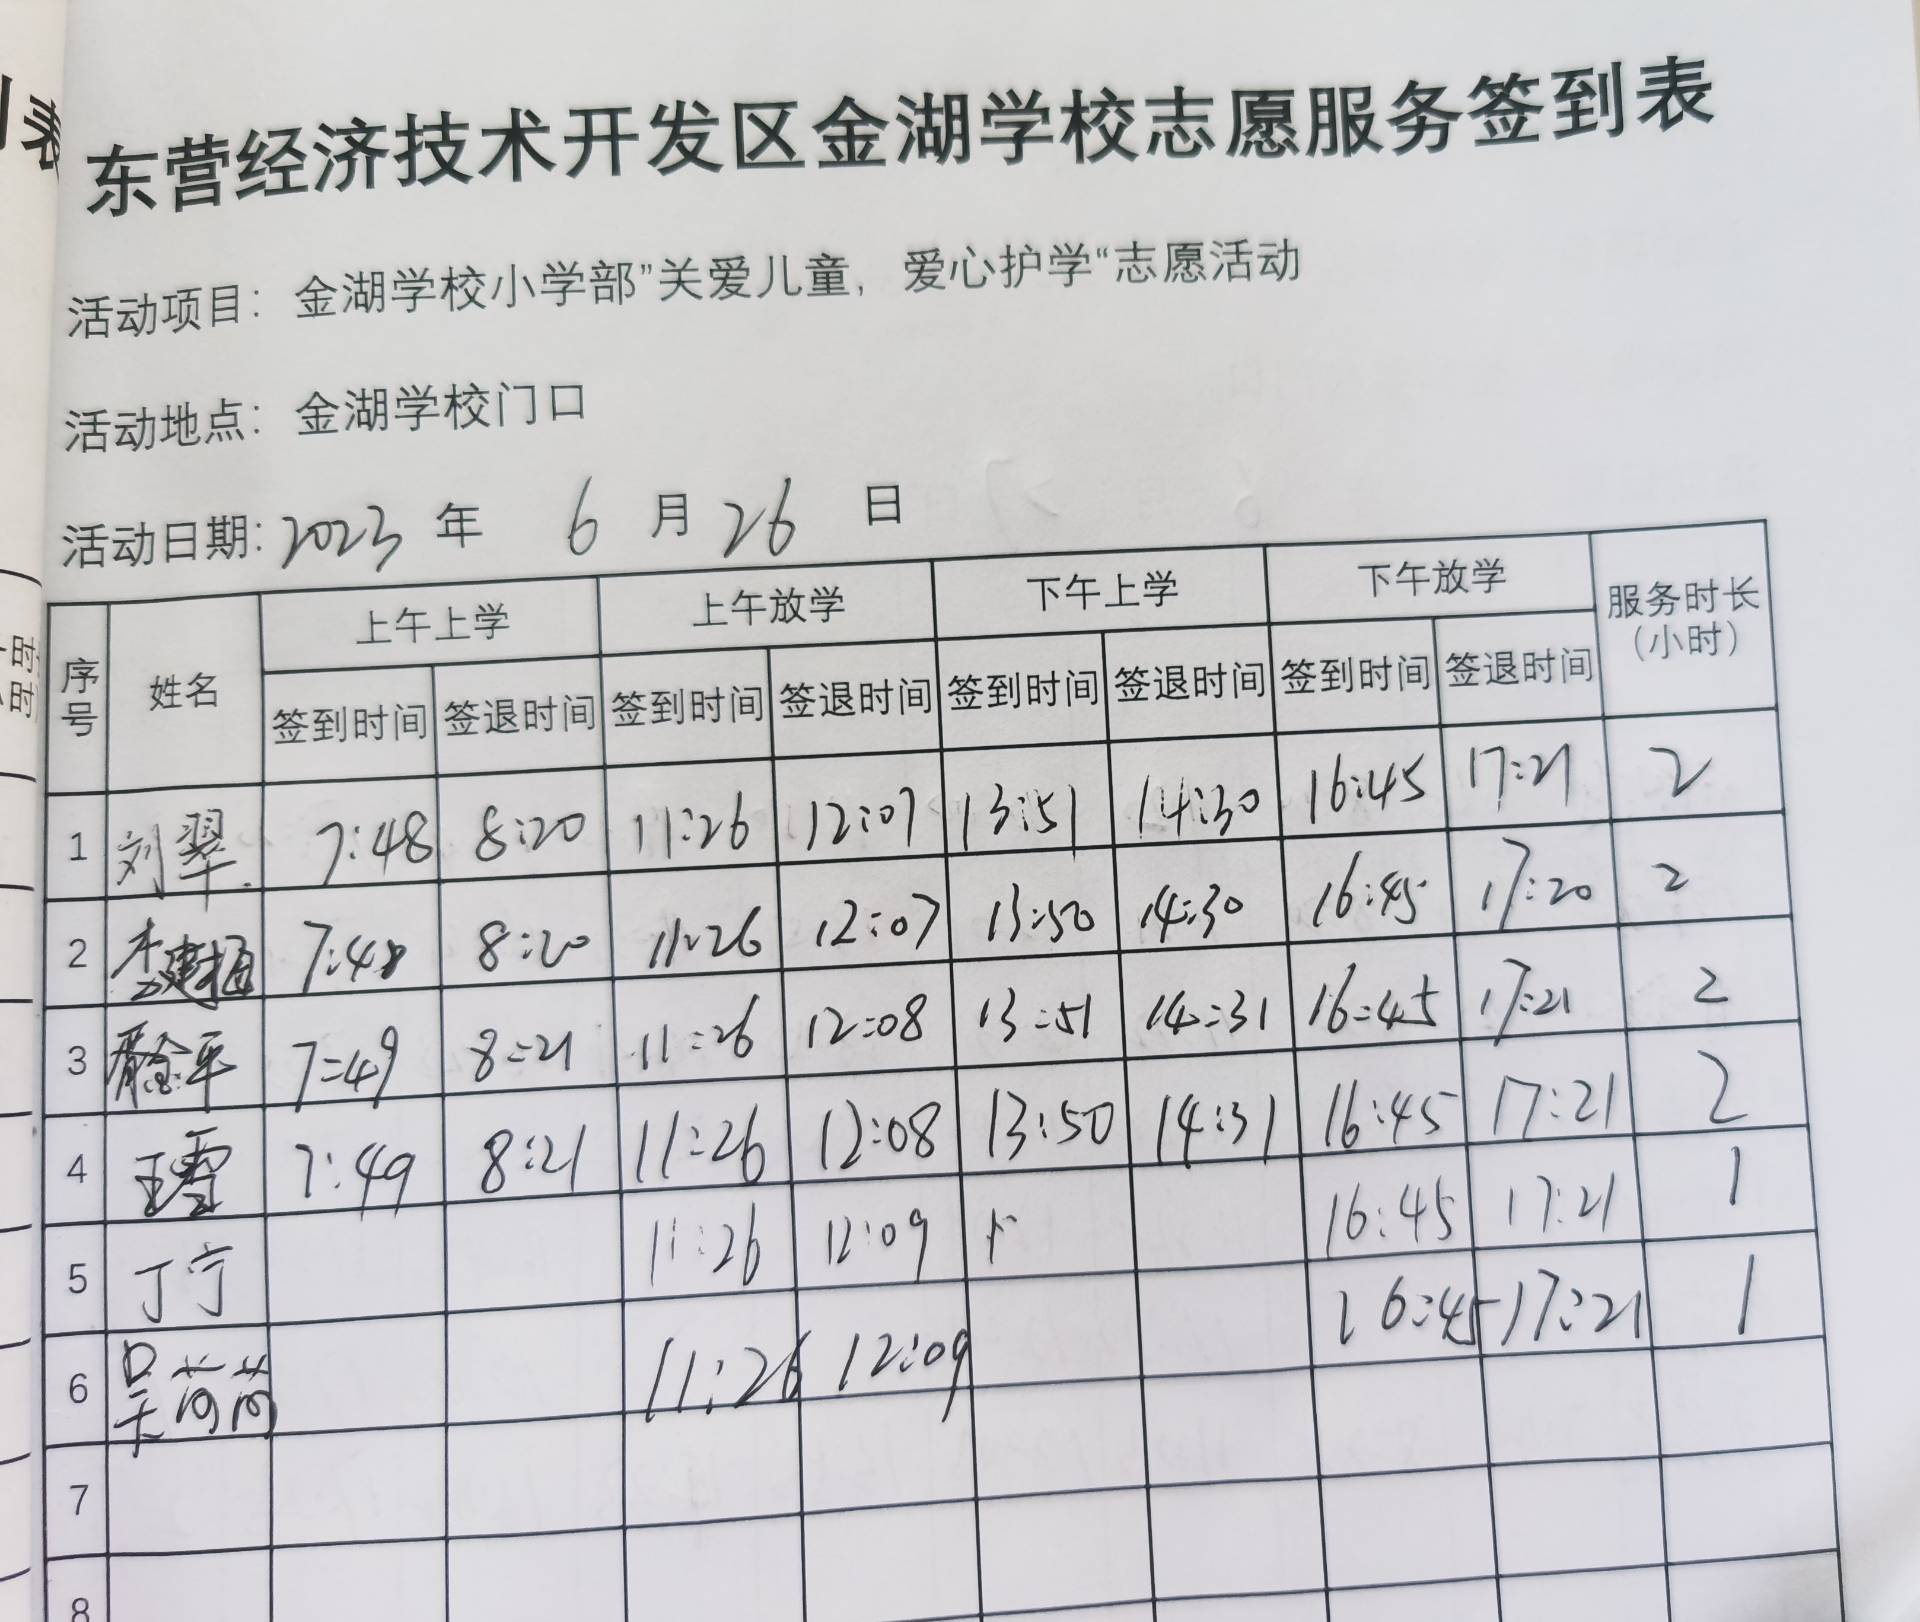 东营经济技术开发区金湖学校志愿服务签到表
活动项目：金湖学校小学部”关爱儿童，爱心护学“志愿活动
活动地点：金湖学校门口
活动日期：2023 年 6 月 26 日
序号 姓名 上午上学 上午放学 下午上学 下午放学 服务时长（小时）
签到时间 签退时间 签到时间 签退时间 签到时间 签退时间 签到时间 签退时间
1 刘翠 7:48 8:20 11:26 12:07 13:51 14:30 16:45 17:21 2
2 7:48 8:20 11:26 12:07 13:50 14:30 16:45 17:20 2
3 7:49 8:21 11:26 12:08 13:51 14:31 16:45 17:21 2
4 王雪 7:49 8:21 11:26 12:08 13:50 14:31 16:45 17:21 2
5 丁宁 11:26 12:09 16:45 17:21 1
6 吴茼茼 11:26 12:09 16:45 17:21 1
7
8